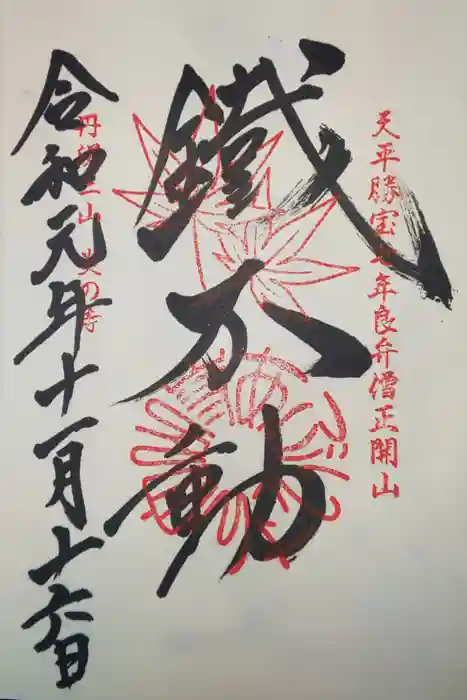 天平勝宝七年良弁僧正開山
鐵不動
丹 山 の寺
令和元年十一月十六日